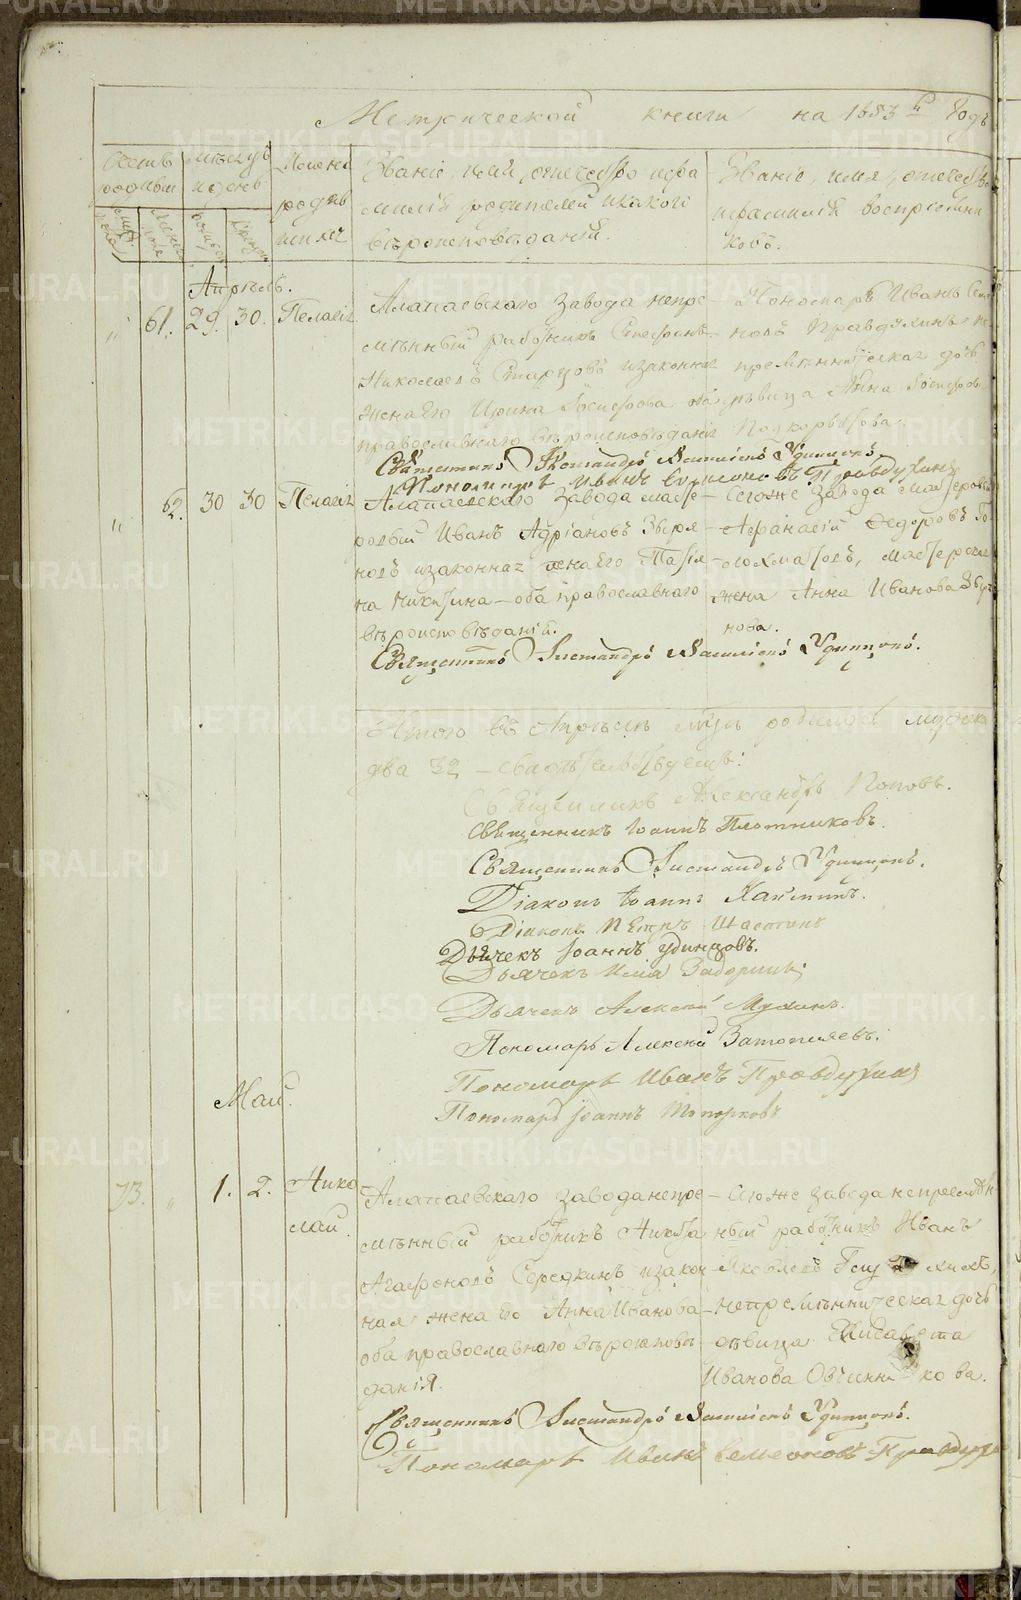 Метрической книги на 1853й Годъ
Счетъ родивш
Мѣсяцъ и день
Имена родившихъ
Званіе, имя, отчество и фамилія родителей и какого вѣроисповѣданія.
Званіе, имя, отечество и фамилія воспріемниковъ.
Апрѣль.
61. 29. 30. Пелагія
Алапаевскаго завода непре-
мѣнный работникъ Стефанъ
Николаевъ Старцовъ и законная
жена его Ирина Іосифова оба
православнаго вѣроисповѣданія
Пономарь Иванъ Семе-
новъ Правдухинъ и не-
премѣнническая дочь
дѣвица Анна Іосифова
Священникъ Александръ Васильевъ Удинцовъ.
Пономарь Иванъ Семеоновъ Правдухинъ
62. 30 30 Пелагія
Алапаевскаго завода масте-
ровый Иванъ Адріановъ Зыря-
новъ и законная жена его Татія-
на Никитина – оба православнаго
вѣроисповѣданія.
Тогоже завода мастеровый
Афанасій Федоровъ
мастерская
жена Анна Иванова Зыря-
нова.
Священникъ Александръ Васильевъ Удинцовъ.
Итого въ Апрѣлѣ мцѣ родилось
два 32 – свидѣтельствуемъ:
Священникъ Александръ Поповъ.
Священникъ Іоаннъ Плотниковъ.
Священникъ Александръ Удинцовъ.
Діаконъ Іоаннъ
Діаконъ Петръ
Дьячекъ Іоаннъ Удинцовъ.
Дьячекъ Илія Задоринъ
Дьячекъ Алексѣй Мухинъ.
Пономарь Алексѣй Затопляевъ.
Пономарь Иванъ Правдухинъ
Пономарь Іоаннъ Топорковъ
Май.
73. " 1. 2. Нико-
лай
Алапаевскаго завода непре-
мѣнный работникъ Никита
Агафоновъ Середкинъ и закон-
ная жена его Анна Иванова
оба православнаго вѣроисповѣ-
данія.
Тогоже завода непремѣн-
ный работникъ Иванъ
Яковлевъ
непремѣнническая дочь
дѣвица Елисавета
Иванова Овчинникова.
Священникъ Александръ Васильевъ Удинцовъ.
Пономарь Иванъ Семеоновъ Правдухинъ
METRIKI.GASO-URAL.RU